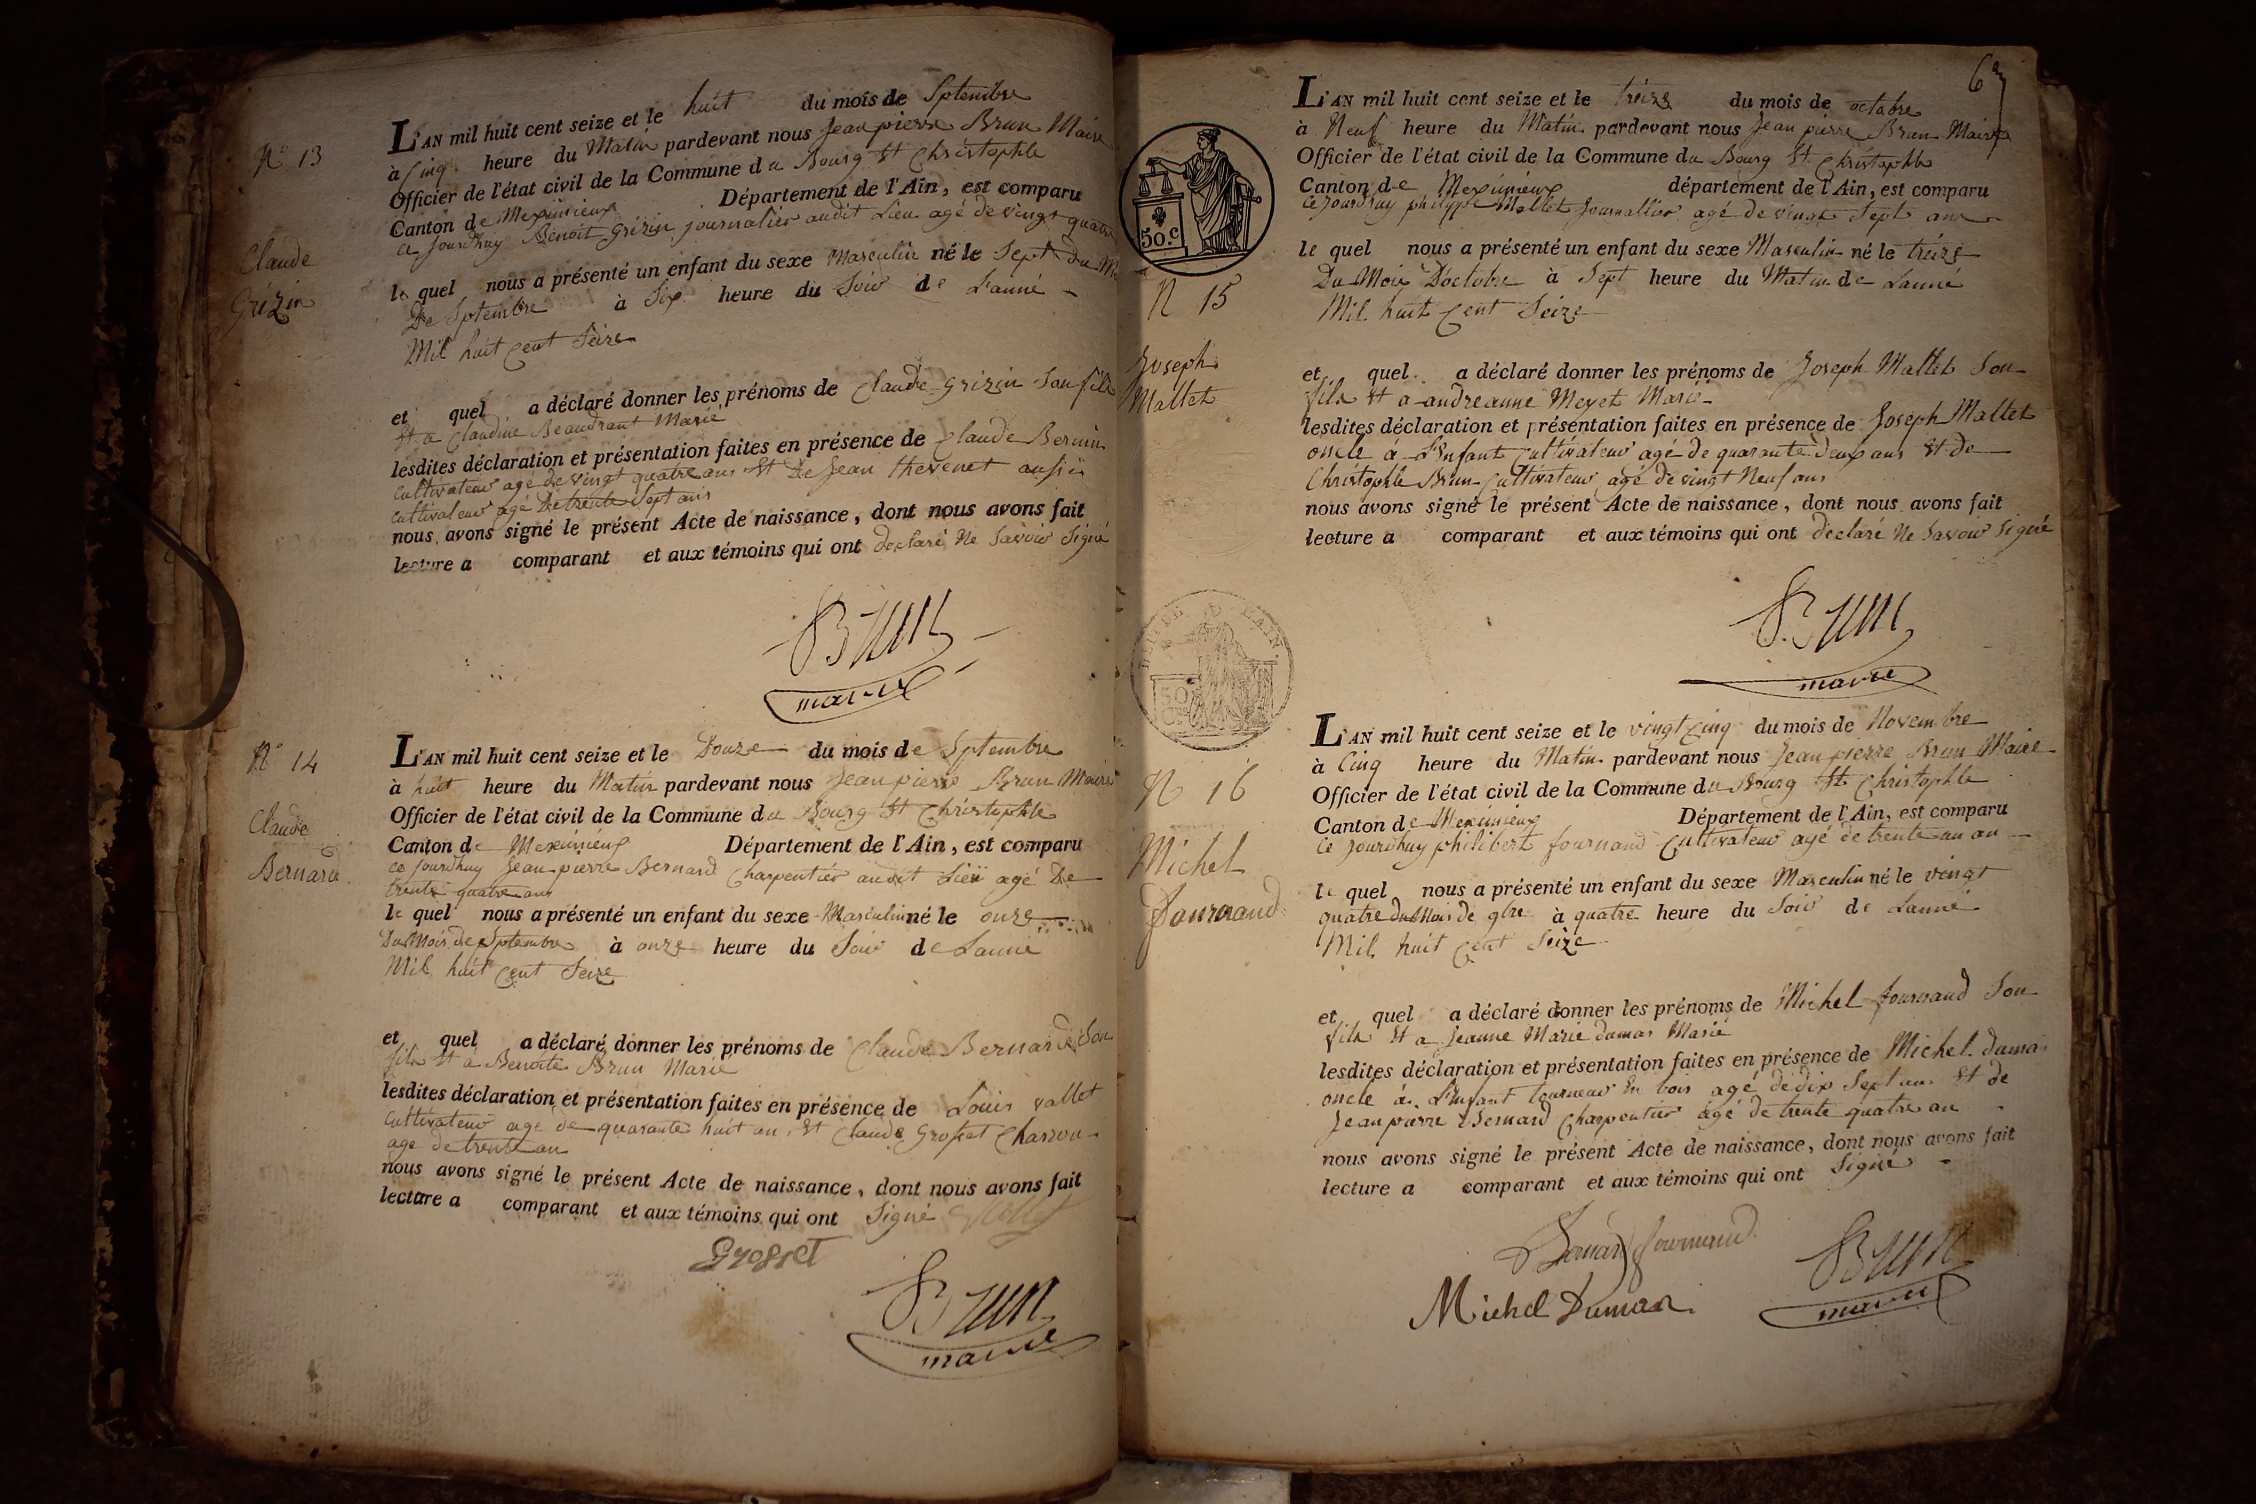 N° 13
Claude
Grizin
L'AN mil huit cent seize et le huit du mois de Septembre
à Cinq heure du Matin pardevant nous Jean pierre Brun Maire
Officier de l'état civil de la Commune du Bourg St Christophle
Canton de Meximieux Département de l'Ain, est comparu
ce jourdhuy Benoit Grizin journalier audit Lieu agé de vingt quatre
le quel nous a présenté un enfant du sexe Masculin né le Sept du
De Septembre à Six heure du Soir de L'anné
Mil huit Cent Seize
et quel a déclaré donner les prénoms de Claude Grizin Son fils
Et a Claudine Beaudrant Marié
lesdites déclaration et présentation faites en présence de Claude Bernin
Cultivateur agé de vingt quatre ans Et De Jean thevenet aussi
Cultivateur agé De trente Sept ans
nous avons signé le présent Acte de naissance, dont nous avons fait
lecture a comparant et aux témoins qui ont declaré Ne Savoir Signé
Brun
maire
N° 14
Claude
Bernard
L'AN mil huit cent seize et le Douze du mois de Septembre
à huit heure du Matin pardevant nous Jean pierre Brun Maire
Officier de l'état civil de la Commune du Bourg St Christophle
Canton de Meximieux Département de l'Ain, est comparu
ce jourdhuy Jean pierre Bernard Charpentier audit Lieu agé De
trente quatre ans
le quel nous a présenté un enfant du sexe Masculin né le onze
Du Mois de Septembre à onze heure du Soir de Lanné
Mil huit Cent Seize
et quel a déclaré donner les prénoms de Claude Bernard Son
fils Et a Benoite Brun Marié
lesdites déclaration et présentation faites en présence de Louis vallet
Cultivateur agé de quarante huit an Et Claude Grosset Charron
agé de trente an
nous avons signé le présent Acte de naissance, dont nous avons fait
lecture a comparant et aux témoins qui ont Signé
Grosset
Brun
maire
50.c
N 15
Joseph
Mallet
L'AN mil huit cent seize et le treize du mois de octobre
à Neuf heure du Matin pardevant nous Jean pierre Brun Maire
Officier de l'état civil de la Commune du Bourg St Christophle
Canton de Meximieux département de l'Ain, est comparu
ce jourdhuy philippe Mallet Journallier agé de vingt Sept ans
le quel nous a présenté un enfant du sexe Masculin né le treize
Du Mois D'octobre à Sept heure du Matin de Lanné
Mil huit Cent Seize
et quel a déclaré donner les prénoms de Joseph Mallet Son
fils Et a andreanne Meyet Marié
lesdites déclaration et présentation faites en présence de Joseph Mallet
oncle à L'Enfant Cultivateur agé de quarante deux ans Et de
Christophle Brun Cultivateur agé de vingt Neuf ans
nous avons signé le présent Acte de naissance, dont nous avons fait
lecture a comparant et aux témoins qui ont declaré Ne Savoir Signé
Brun
maire
N 16
Michel
fournand
L'AN mil huit cent seize et le vingt Cinq du mois de Novembre
à Cinq heure du Matin pardevant nous Jean pierre Brun Maire
Officier de l'état civil de la Commune du Bourg St Christophle
Canton de Meximieux Département de l'Ain, est comparu
Ce jourdhuy philibert fournand Cultivateur agé de trente un an
le quel nous a présenté un enfant du sexe Masculin né le vingt
quatre du Mois de 9bre à quatre heure du Soir de Lanné
Mil huit Cent Seize
et quel a déclaré donner les prénoms de Michel fournand Son
fils Et a Jeanne Marie damas Marié
lesdites déclaration et présentation faites en présence de Michel damas
oncle à L'Enfant tourneur En bois agé de dix Sept ans Et de
Jean pierre Bernard Charpentier agé de trente quatre an
nous avons signé le présent Acte de naissance, dont nous avons fait
lecture a comparant et aux témoins qui ont Signé
Bernard fournand
Michel Damas
Brun
maire